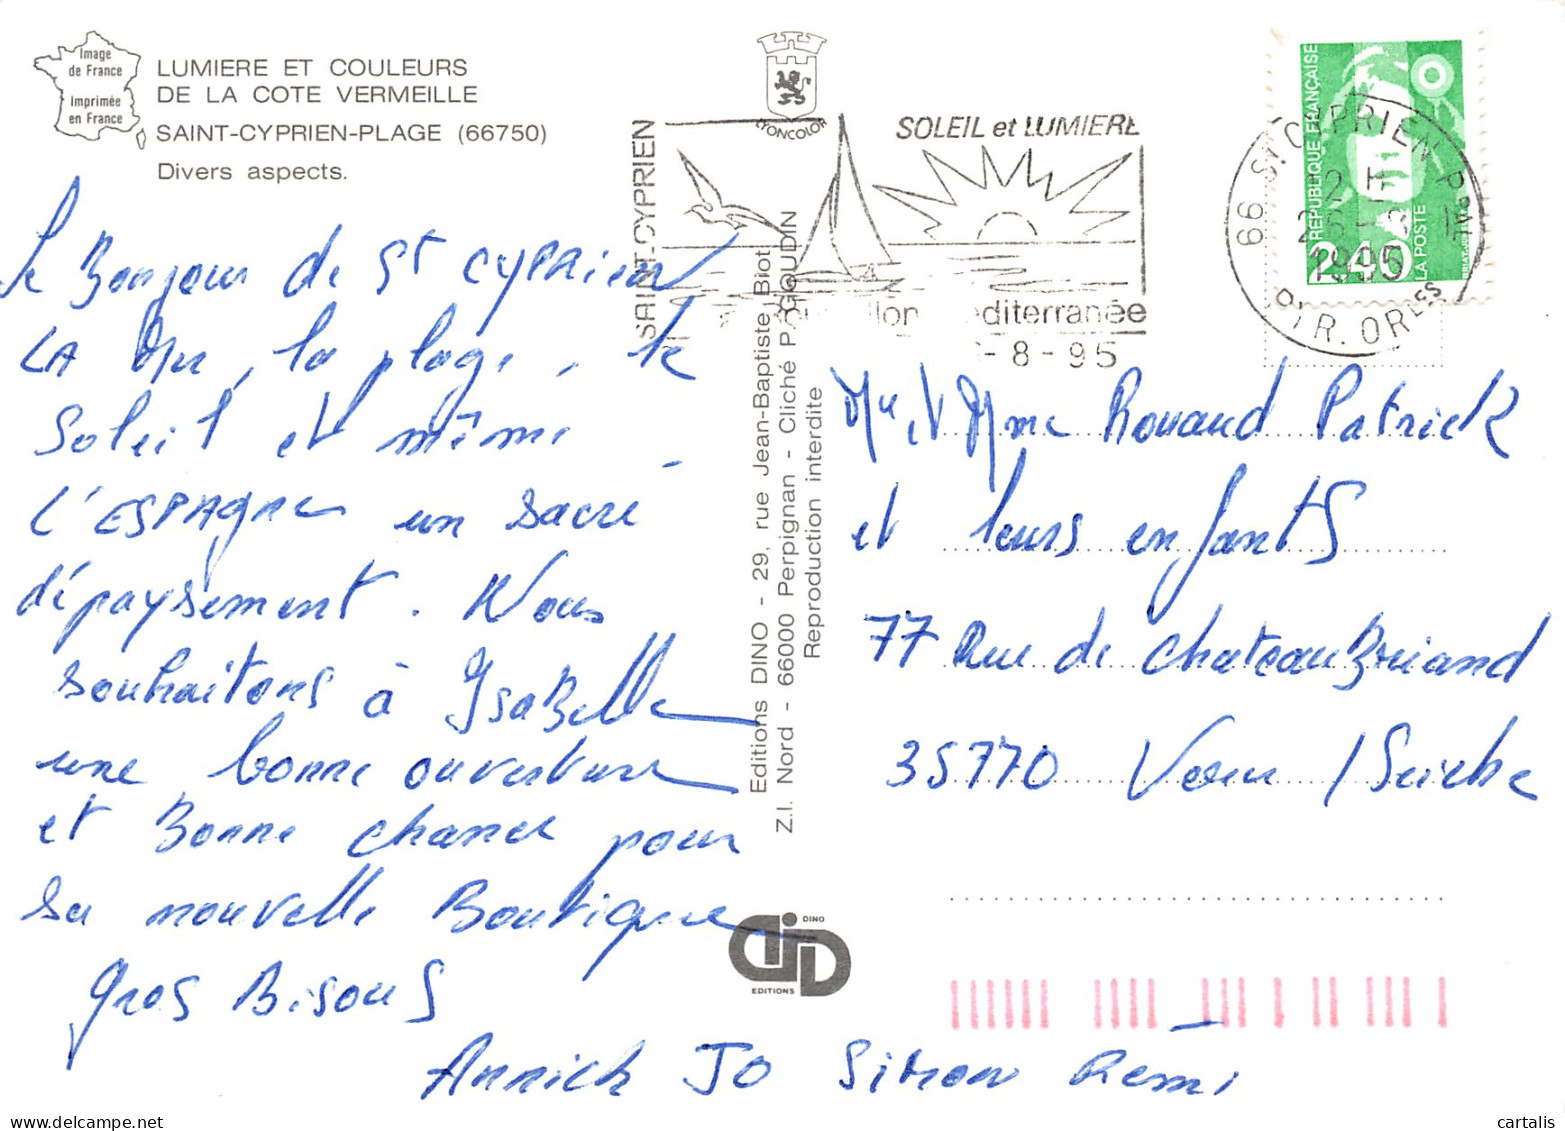 Image
de France
Imprimée
en France
LUMIERE ET COULEURS
DE LA COTE VERMEILLE
SAINT-CYPRIEN-PLAGE (66750)
Divers aspects.
Le Bonjour de St CYPRien
LA Mer, la plage, le
Soleil et même
L'ESPAgne un sacré
dépaysement. Nous
souhaitons à YsaBelle
une bonne ouverture
et Bonne chance pour
sa nouvelle Boutique
gros Bisous
Annick JO Simon Rémi
LYONCOLOR
SAINT-CYPRIEN
SOLEIL et LUMIERE
diterranée
-8-95
66 ST CYPRIEN P PAL
PYR. ORLES
1995
REPUBLIQUE FRANÇAISE
2,40
LA POSTE
Editions DINO - 29, rue Jean-Baptiste Biot
Z.I. Nord - 66000 Perpignan - Cliché P. GOUDIN
Reproduction interdite
DINO
EDITIONS
Mr et Mme Rouaud Patrick
et leurs enfants
77 Rue de chateauBriand
35770 Vern /Seiche